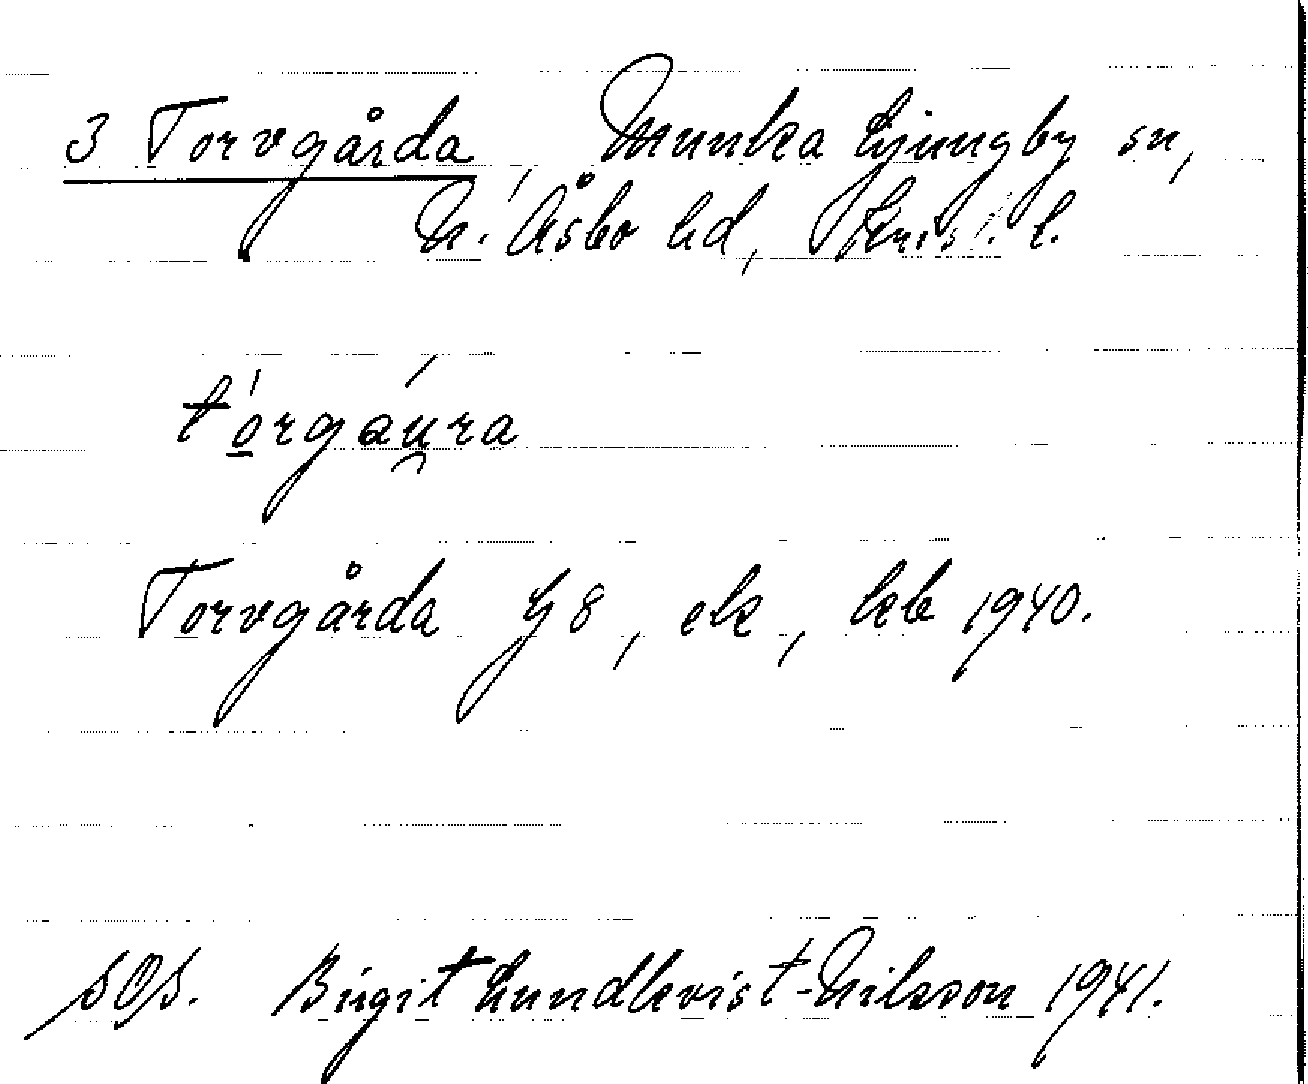 3 Torvgårda, Munka Ljungby sn,
N. Åsbo hd, Krist. l.
tórgáu̯ra
Torvgårda G 8, ek, kb 1940.
SOS. Birgit Lundkvist-Nilsson 1941.